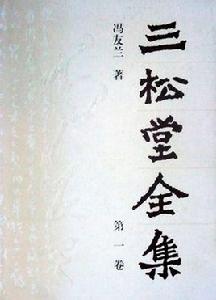 三松堂全集
冯友兰 著
第一卷